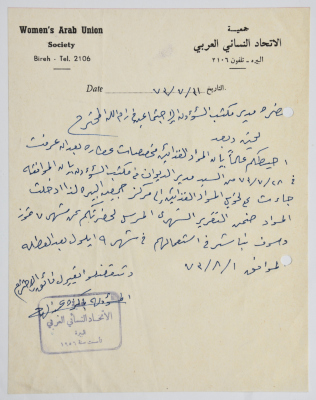 Women's Arab Union
Society
Bireh - Tel. 2106
جمعية
الاتحاد النسائي العربي
البيرة - تلفون ٢١٠٦
Date التاريخ ٧٣/٧/٣١
حضرة مدير مكتب الشؤون الاجتماعية رام الله المحترم
تحية وبعد
احيطكم علماً بان المواد الغذائية مخصصات عطاره بعد ان عرفت
في ٧٣/٧/٢٥ من السيد مدير الديوان في مكتب الشؤون بان الموافقة
جاءت على تحويل المواد الغذائية الى مركز جمعية البيرة لذا ادخلت
المواد ضمن التقرير الشهري المرسل لحضرتكم عن شهر ٧ تموز
وسوف نباشر في استعمالهم في شهر ٩ ايلول بعد العطلة
الموافق ٧٣/٨/١
وتفضلوا بقبول فائق الاحترام
الاتحاد النسائي العربي
البيرة
تأسست سنة ١٩٥٦